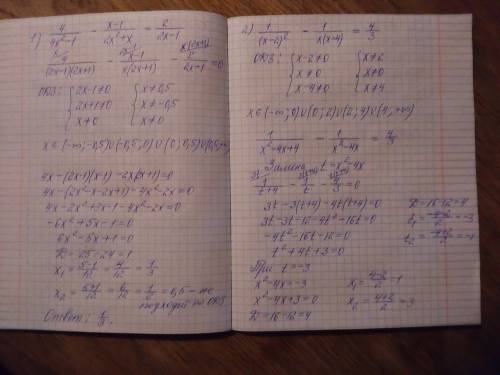 1) 4/(4x²-1) - (x-1)/(2x²+x) = 2/(2x-1)
4/((2x-1)(2x+1)) - (x-1)/(x(2x+1)) - 2/(2x-1) = 0
ОДЗ: { 2x-1≠0 { x≠0,5
2x+1≠0 x≠-0,5
x≠0 x≠0
4x-(2x-1)(x-1)-2x(2x+1)=0
4x-(2x²-x-2x+1)-4x²-2x=0
4x-2x²+3x-1-4x²-2x=0
-6x²+5x-1=0
6x²-5x+1=0
D=25-24=1
x₁=(5-1)/12=4/12=1/3
x₂=(5+1)/12=6/12=1/2=0,5-не
подходит по ОДЗ
Ответ: 1/3.
2) 1/(x-2)² - 1/(x(x-4)) = 4/3
ОДЗ: { x-2≠0 { x≠2
x≠0 x≠0
x-4≠0 x≠4
x∈(-∞;0)∪(0;2)∪(2;4)∪(4;+∞)
1/(x²-4x+4) - 1/(x²-4x) = 4/3
Замена t=x²-4x
1/(t+4) - 1/t - 4/3 = 0
3t-3(t+4)-4t(t+4)=0
3t-3t-12-4t²-16t=0
-4t²-16t-12=0
t²+4t+3=0
D=16-12=4
t₁=(-4-2)/2=-3
t₂=(-4+2)/2=-1
При t=-3
x²-4x=-3
x²-4x+3=0
D=16-12=4
x₁=(4-2)/2=1
x₂=(4+2)/2=3